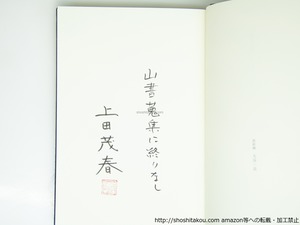 山書蒐集に終りなし
上田茂春
http://shoshitakou.com amazon等への転載・加工禁止